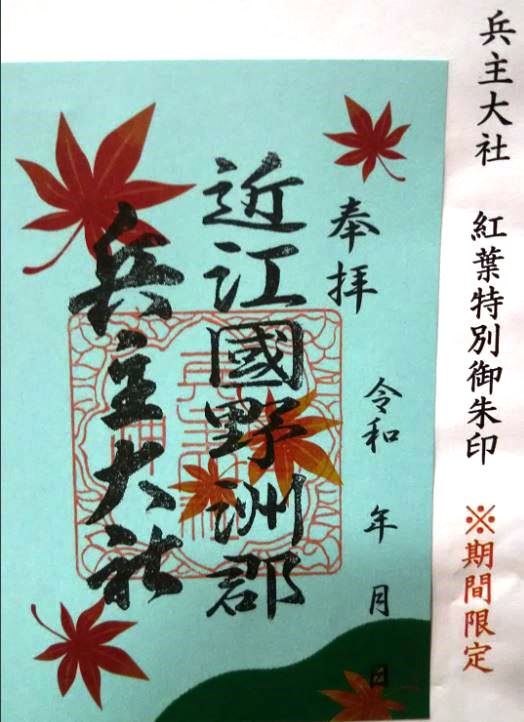 兵主大社 紅葉特別御朱印 ※期間限定
奉拝
令和 年 月 日
近江國野洲郡
兵主大社